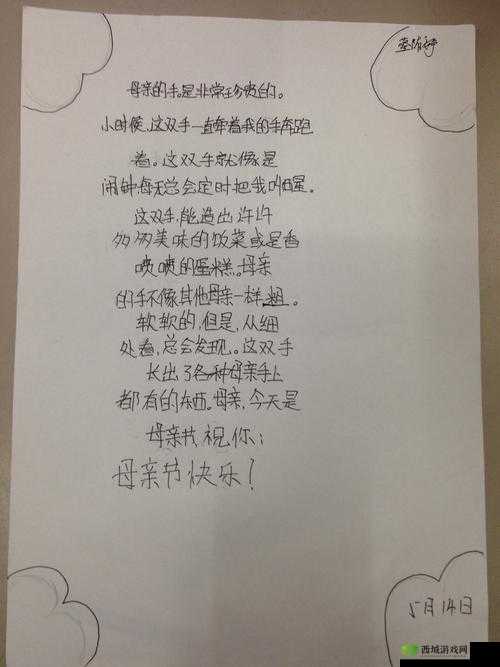 母亲的手。是非常珍贵的。
小时候,这双手一直牵着我的手奔跑
着。这双手就像是
闹钟,每天总会定时把我叫醒。
这双手,能造出许许
多多美味的饭菜或是香
喷喷的蛋糕。母亲
的手不像其他母亲一样粗。
软软的,但是,从细
处看,总会发现。这双手
长出了各种母亲手上
都有的东西。母亲,今天是
母亲节,祝你:
母亲节快乐!
5月14日
西城游戏网